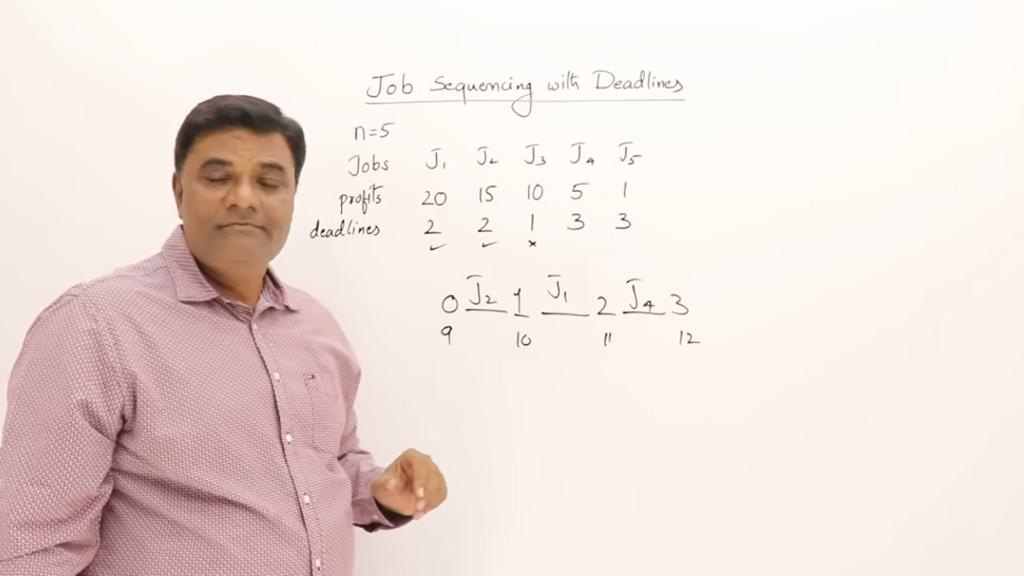 Job Sequencing with Deadlines
n=5
Jobs J₁ J₂ J₃ J₄ J₅
profits 20 15 10 5 1
deadlines 2 2 1 3 3
✓ ✓ ×
0 J₂ 1 J₁ 2 J₄ 3
9 10 11 12